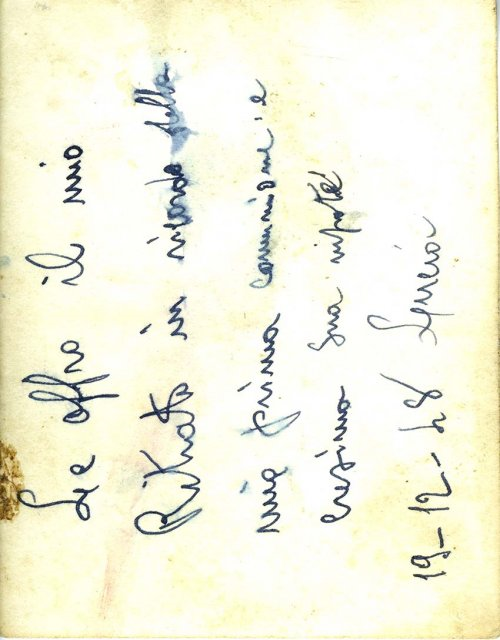 Le offro il mio
Ritratto in ricordo della
mia prima comunione e
cresima Sua nipote
19-12-48 Lucia